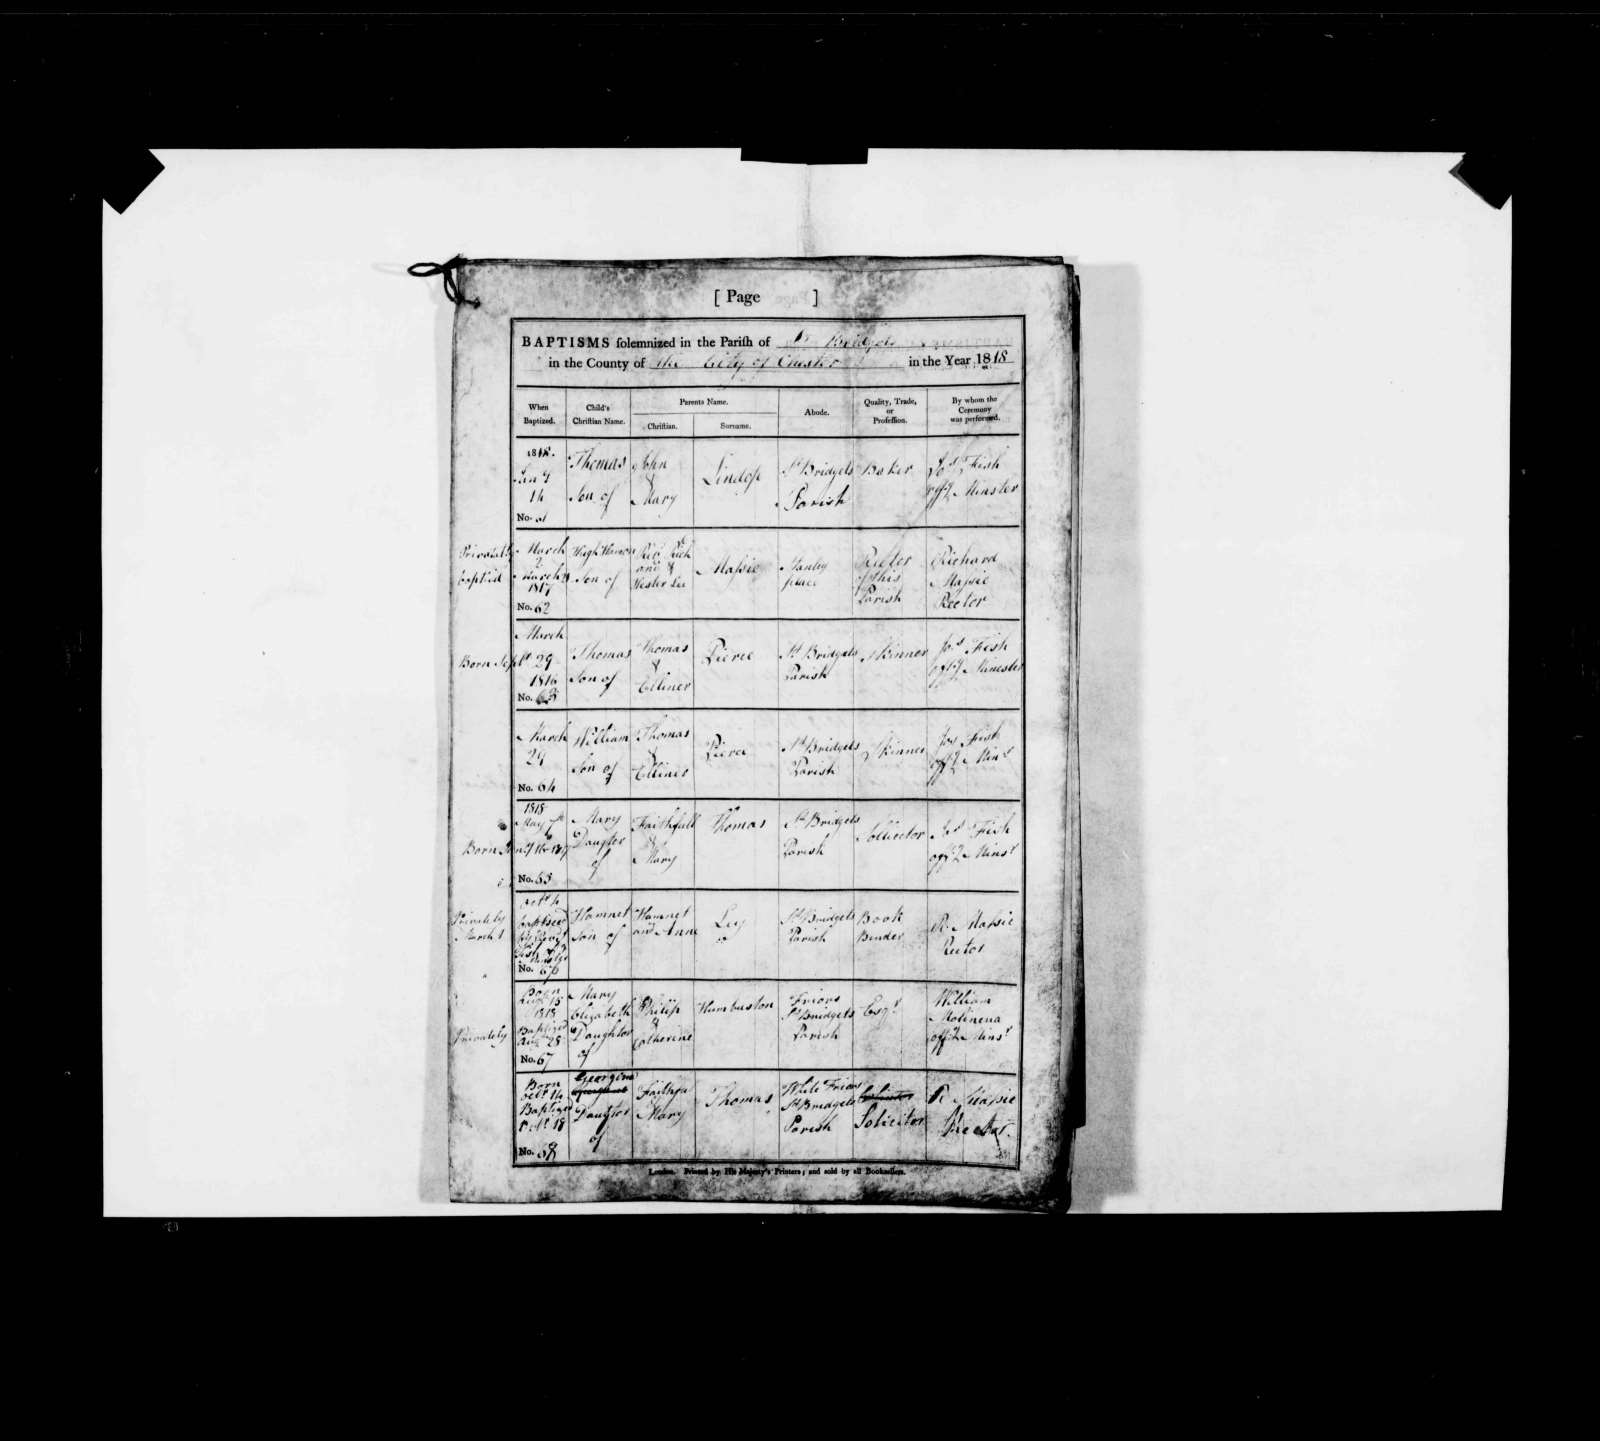 [ Page ]
BAPTISMS solemnized in the Parish of St Bridgets
in the County of the City of Chester in the Year 1818
When Baptized. Child's Christian Name. Parents Name. Christian. Surname. Abode. Quality, Trade, or Profession. By whom the Ceremony was performed.
1818.
Jany
14
No. 61
Thomas
Son of
John
&
Mary
Lindop
St Bridgets
Parish
Baker
Jos Fish
offg Minster
Privately
baptid
March
2
March
1817
No. 62
Hugh
Son of
Rev Rich
and
Hester Lee
Massie
Stanley
place
Rector
of this
Parish
Richard
Massie
Rector
Born Sept
March
29
1816
No. 63
Thomas
Son of
Thomas
&
Elliner
Pierce
St Bridgets
Parish
Skinner
Jos Fish
offg Minester
March
29
No. 64
William
Son of
Thomas
&
Elliner
Pierce
St Bridgets
Parish
Skinner
Jos Fish
offg Minr
1818
May 7
Born Jany 16 1817
No. 65
Mary
Daugter
of
Faithfull
&
Mary
Thomas
St Bridgets
Parish
Sollicitor
Jos Fish
offg Minsr
Privately
March 1
Octr 4
baptised
No. 66
Hamnet
Son of
Hamnet
and Anne
Ley
St Bridgets
Parish
Book
Binder
R. Massie
Rector
Privately
Born
Augt 15
1818
Baptized
Aug 28
No. 67
Mary
Elizabeth
Daughter
of
Philip
&
Catherine
Humberston
Friars
St Bridgets
Parish
Esqr
William
Molineux
offg Minsr
Born
Octr 14
Baptized
Octr 18
No. 68
Georgina
Daugter
of
Faithfu
Mary
Thomas
White Friars
St Bridgets
Parish
Solicitor
R Massie
Rector.
London. Printed by His Majesty's Printers; and sold by all Booksellers.